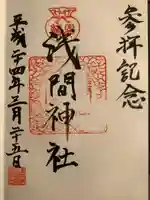 参拝記念
浅間神社
平成二十四年三月二十五日